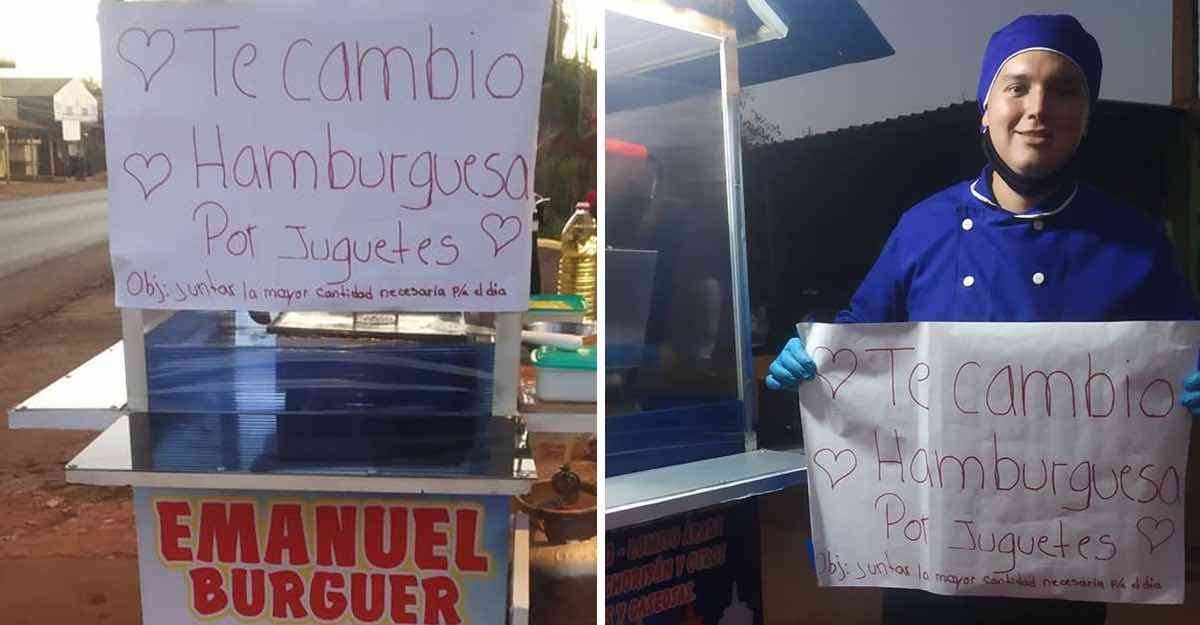 Te cambio
Hamburguesa
Por Juguetes
Obj: juntas la mayor cantidad necesaria p/a el día
EMANUEL
BURGUER
Te cambio
Hamburguesa
Por Juguetes
Obj: juntas la mayor cantidad necesaria p/a el día
- LOMITO ÁRABE
Y OTROS
Y GASEOSAS.